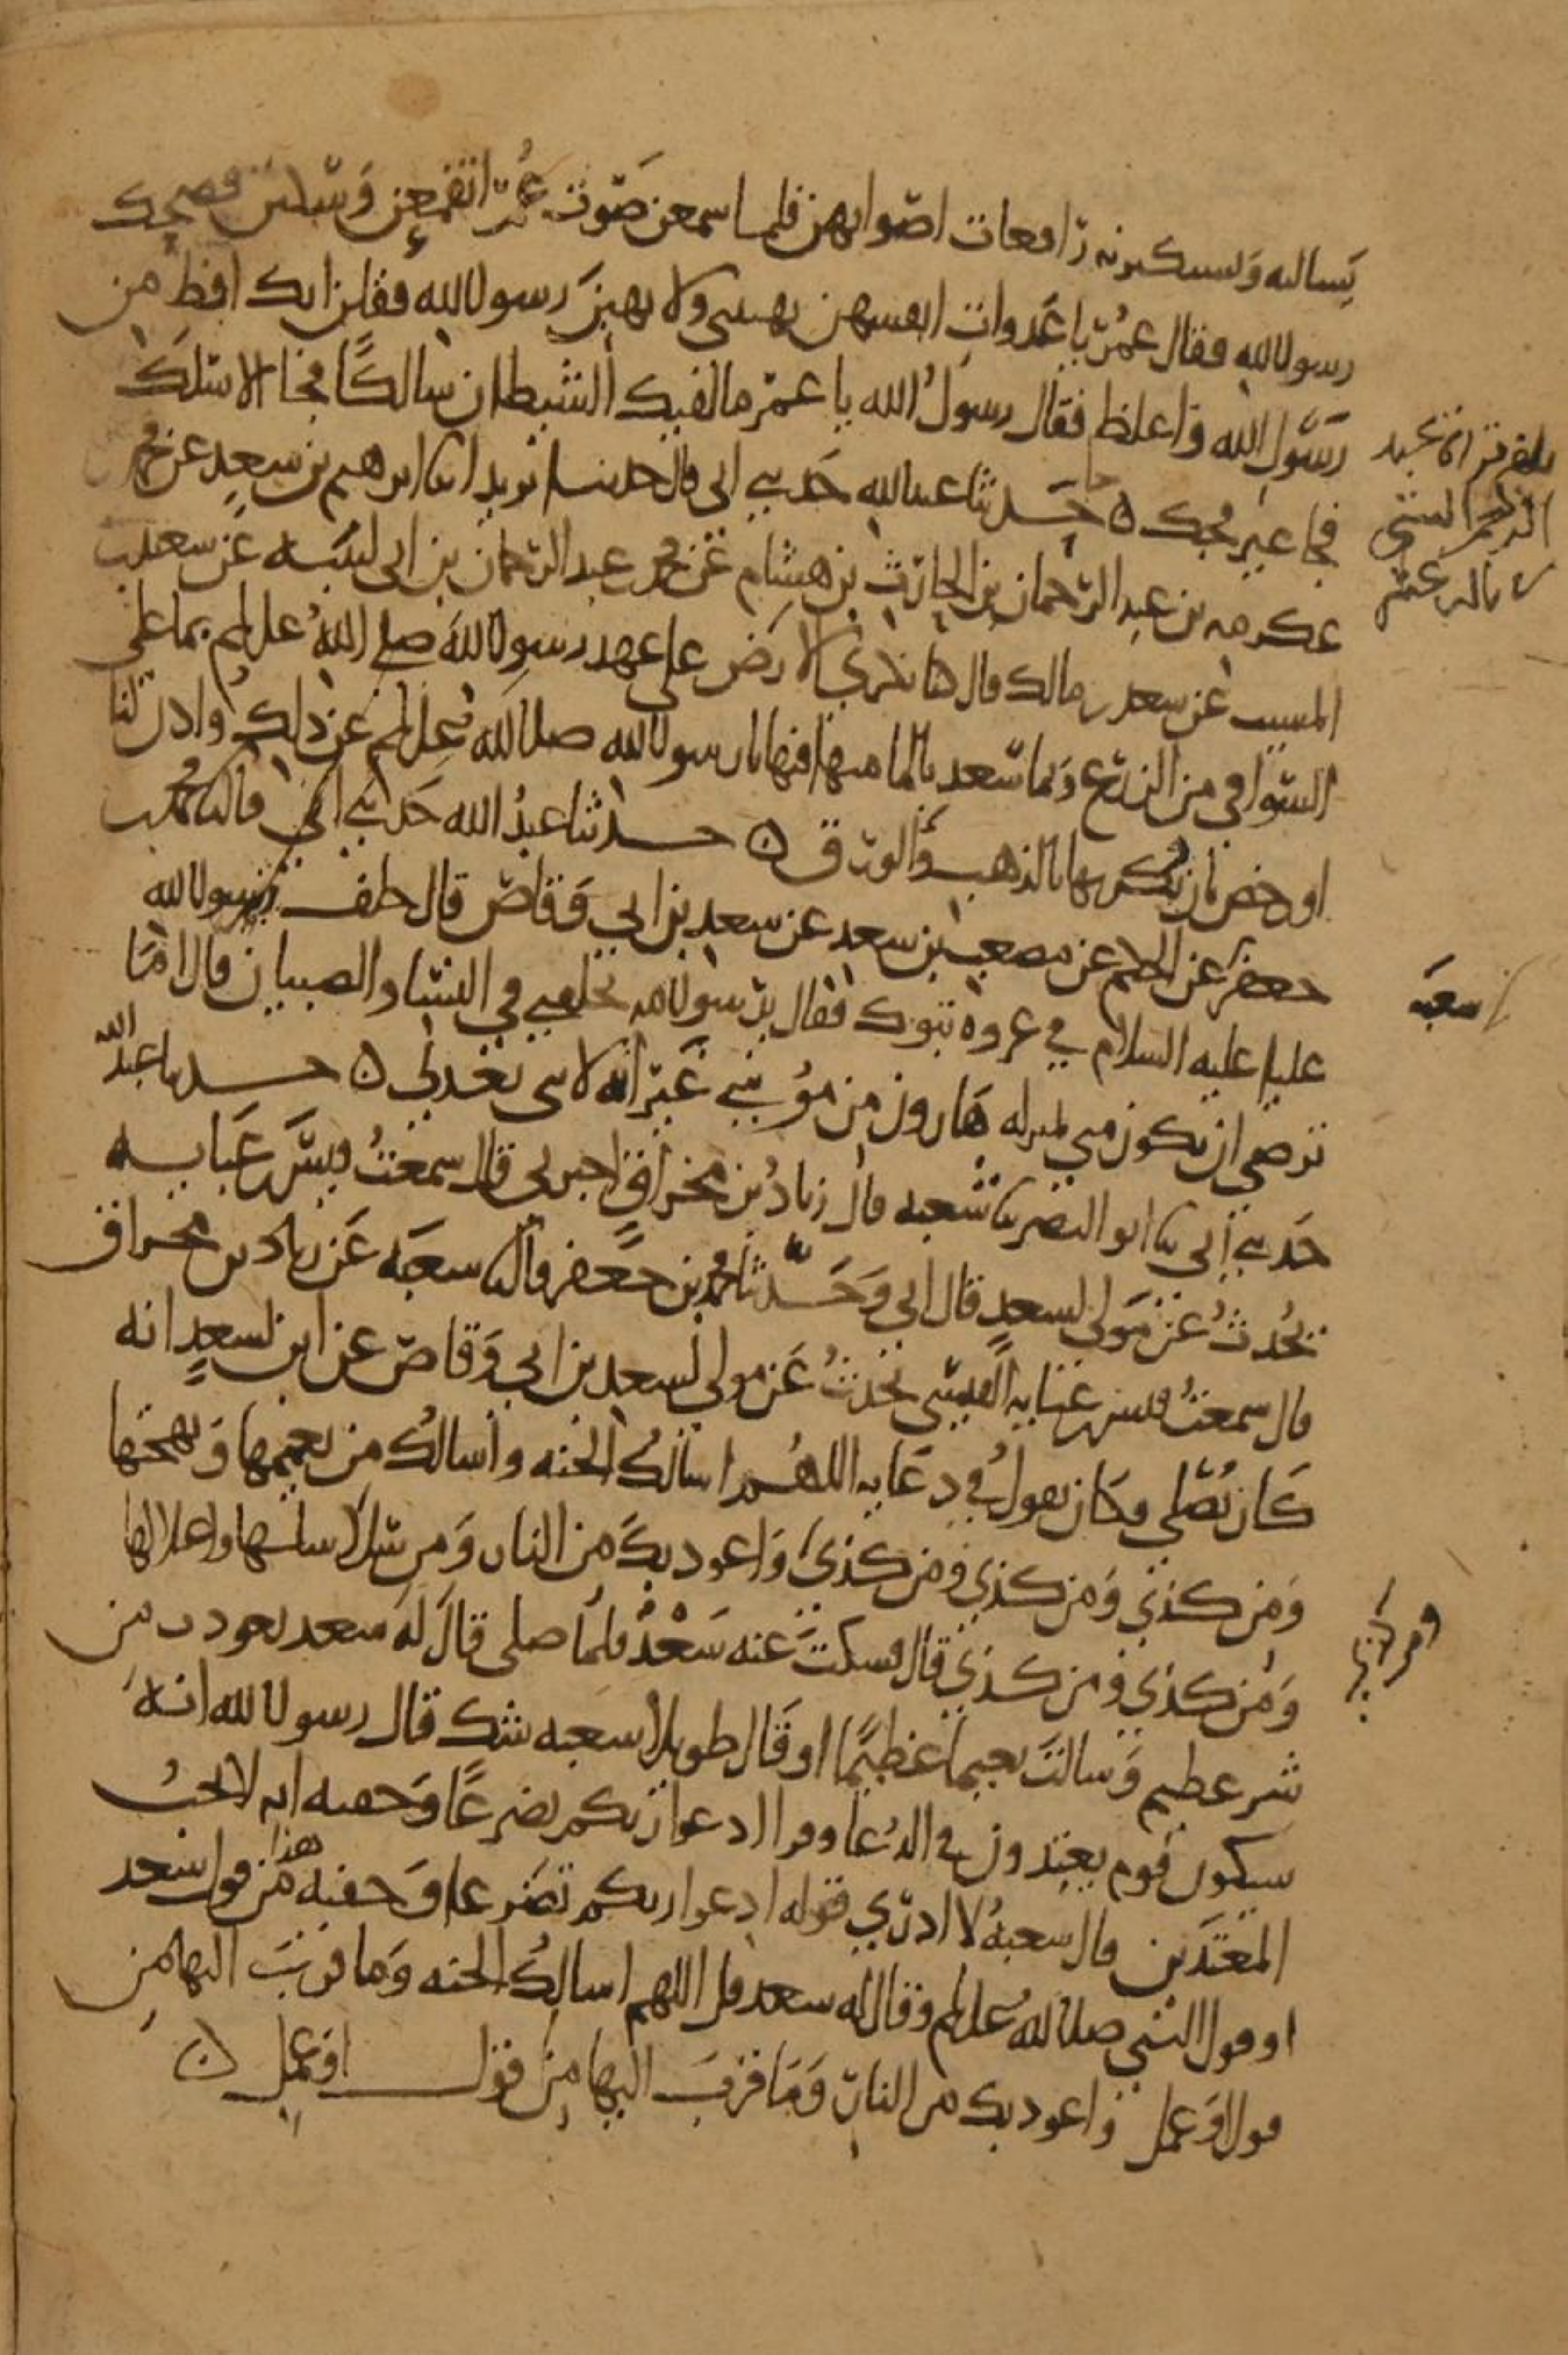 يسالنه ويستكثرنه رافعات اصواتهن فلما سمعن صوت عمر انقمعن وسكتن فضحك
رسول الله فقال عمر يا عدوات انفسهن تهبنني ولا تهبن رسول الله فقلن انك افظ من
رسول الله واغلظ فقال رسول الله يا عمر ما لقيك الشيطان سالكا فجا الا سلك
فجا غير فجك ه حدثنا عبد الله حدثني ابي قال حدثنا يزيد انا ابرهيم بن سعد عن محمد
عكرمه بن عبد الرحمان بن الحارث بن هشام عن محمد عبد الرحمان بن ابي لبيبه عن سعيد بن
المسيب عن سعد بن مالك قال كنا نكري الارض على عهد رسول الله صلى الله عليه وسلم بما على
السواقي من الزرع وبما سعد بالما منها فنهانا رسول الله صلى الله عليه وسلم عن ذلك واذن لنا
او رخص بان نكريها بالذهب والورق ه حدثنا عبد الله حدثني ابي قال ثنا محمد بن
جعفر عن الحكم عن مصعب بن سعد عن سعد بن ابي وقاص قال خلف رسول الله
عليا عليه السلام في غزوه تبوك فقال يرسول الله تخلفني في النسا والصبيان قال اما
ترضى ان تكون مني بمنزله هارون من موسى غير انه لا نبي بعدي ه حدثنا عبد الله
حدثني ابي ثنا ابو النضر ثنا شعبه قال زياد بن مخراق اخبرني قال سمعت قيس بن عبايه
يحدث عن مولى لسعد قال ابي وحدثنا محمد بن جعفر قال ثنا شعبه عن زياد بن مخراق
قال سمعت قيس بن عبايه القيسي يحدث عن مولى لسعد بن ابي وقاص عن ابن لسعد انه
كان يصلي وكان يقول في دعايه اللهم اسالك الجنه واسالك من نعيمها وبهجتها
ومن كذي ومن كذي ومن كذي واعوذ بك من النار ومن سلاسلها واغلالها
ومن كذي ومن كذي قال فسكت عنه سعد فلما صلى قال له سعد تعوذت من
شر عظيم وسالت نعيما عظيما او قال طويلا شعبه شك قال رسول الله انه
سيكون قوم يعتدون في الدعا وقرا ادعوا ربكم تضرعا وخفيه انه لا يحب
المعتدين قال شعبه لا ادري قوله ادعوا ربكم تضرعا وخفيه هذا من قول سعد
او قول النبي صلى الله عليه وسلم وقال له سعد قل اللهم اسالك الجنه وما قرب اليها من
قول او عمل واعوذ بك من النار وما قرب اليها من قول او عمل ه
شعبه
ومن كذي